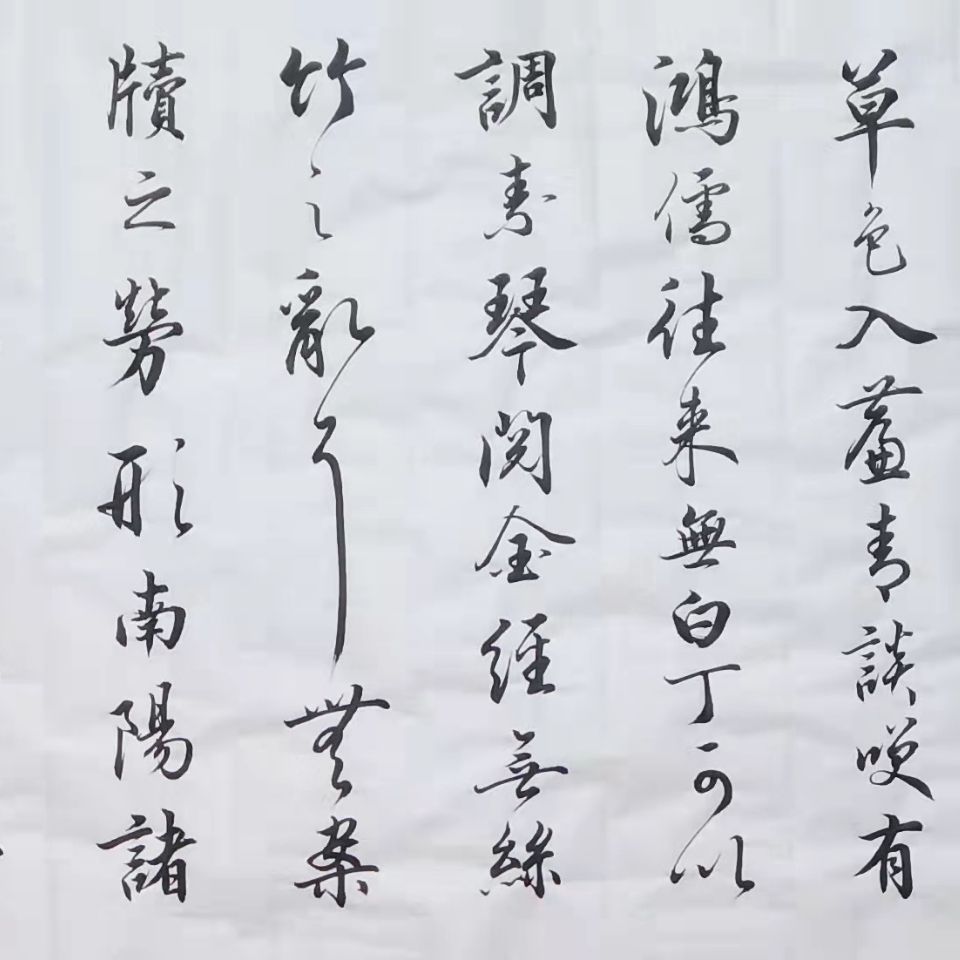 草色入簾青談咲有
鴻儒往来無白丁可以
調素琴閱金經無絲
竹之亂耳無案
牘之勞形南陽諸